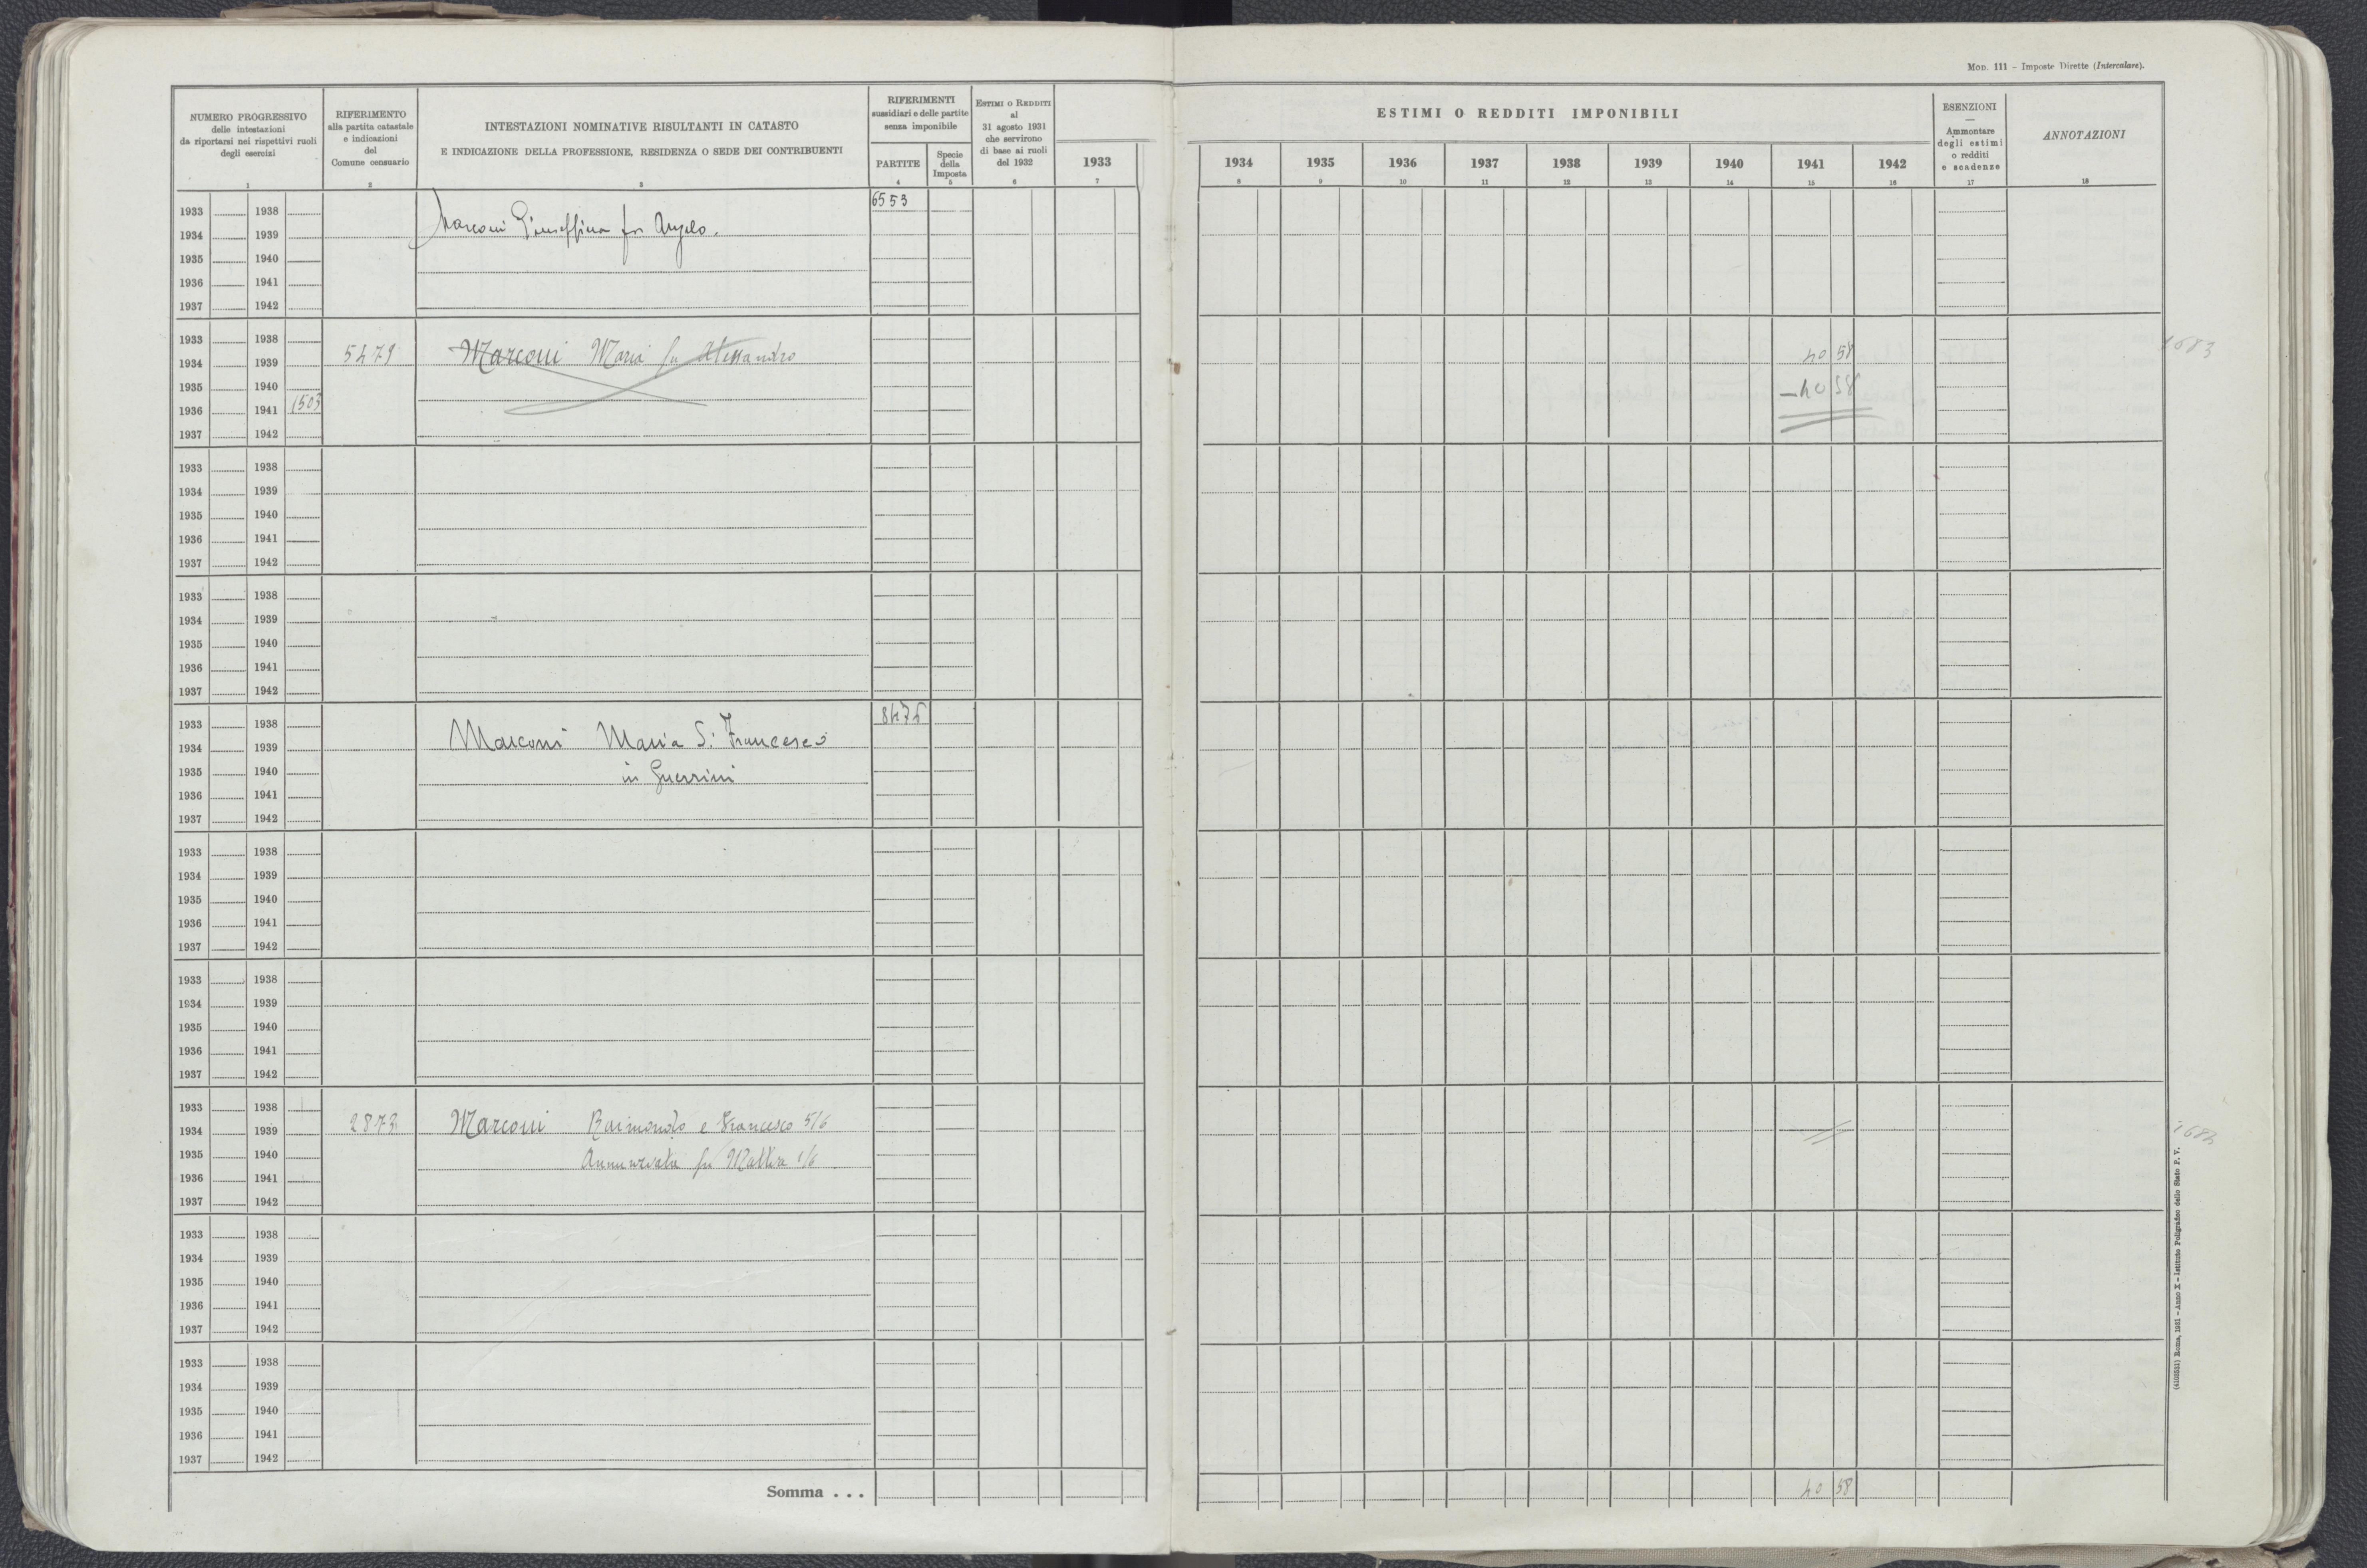 Mod. 111 - Imposte Dirette (Intercalare).
NUMERO PROGRESSIVO
delle intestazioni
da riportarsi nei rispettivi ruoli
degli esercizi
1
RIFERIMENTO
alla partita catastale
e indicazioni
del
Comune censuario
2
INTESTAZIONI NOMINATIVE RISULTANTI IN CATASTO
E INDICAZIONE DELLA PROFESSIONE, RESIDENZA O SEDE DEI CONTRIBUENTI
3
RIFERIMENTI
sussidiari e delle partite
senza imponibile
PARTITE
4
Specie
della
Imposta
5
ESTIMI O REDDITI
al
31 agosto 1931
che servirono
di base ai ruoli
del 1932
6
ESTIMI O REDDITI IMPONIBILI
1933 1934 1935 1936 1937 1938 1939 1940 1941 1942
7 8 9 10 11 12 13 14 15 16
ESENZIONI
—
Ammontare
degli estimi
o redditi
e scadenze
17
ANNOTAZIONI
18
1933 1938 6553
Marconi Giuseffina fu Angelo.
1934 1939
1935 1940
1936 1941
1937 1942
1933 1938
1934 1939 5479 Marconi Maria fu Alessandro 40 58
1935 1940 - 40 58
1936 1941 1503
1937 1942
1933 1938
1934 1939
1935 1940
1936 1941
1937 1942
1933 1938
1934 1939
1935 1940
1936 1941
1937 1942
1933 1938
1934 1939 Marconi Maria di Francesco
1935 1940 in Guerrini
1936 1941
1937 1942
1933 1938
1934 1939
1935 1940
1936 1941
1937 1942
1933 1938
1934 1939
1935 1940
1936 1941
1937 1942
1933 1938
1934 1939 2873 Marconi Raimondo e Francesco 5/6
1935 1940 Annunziata fu Mattia 1/6
1936 1941
1937 1942
1933 1938
1934 1939
1935 1940
1936 1941
1937 1942
1933 1938
1934 1939
1935 1940
1936 1941
1937 1942
Somma . . . 40 58
(4102531) Roma, 1931 - Anno X - Istituto Poligrafico dello Stato P. V.